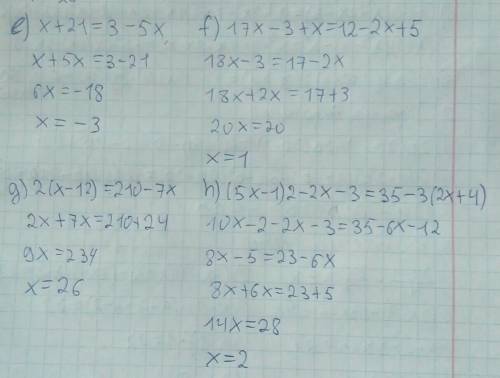 e) x+21=3-5x
x+5x=3-21
6x=-18
x=-3
f) 17x-3+x=12-2x+5
18x-3=17-2x
18x+2x=17+3
20x=20
x=1
g) 2(x-12)=210-7x
2x+7x=210+24
9x=234
x=26
h) (5x-1)2-2x-3=35-3(2x+4)
10x-2-2x-3=35-6x-12
8x-5=23-6x
8x+6x=23+5
14x=28
x=2